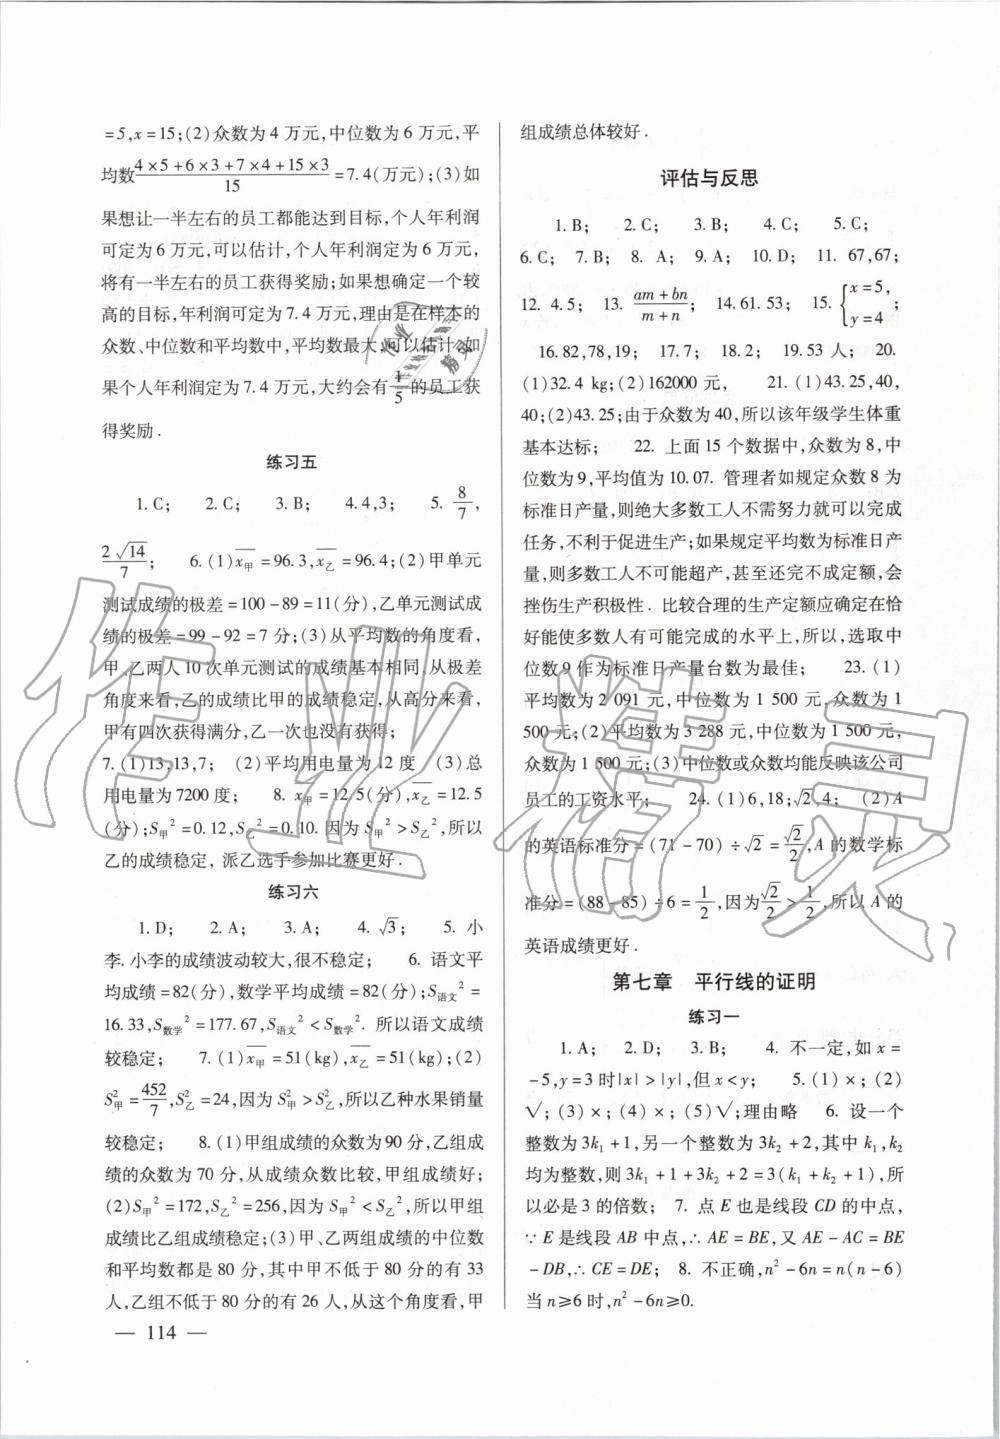 =5,x=15;(2)众数为4万元,中位数为6万元,平
均数\frac{4×5+6×3+7×4+15×3}{15}=7.4(万元);(3)如
果想让一半左右的员工都能达到目标,个人年利润
可定为6万元,可以估计,个人年利润定为6万元,
将有一半左右的员工获得奖励;如果想确定一个较
高的目标,年利润可定为7.4万元,理由是在样本的
众数、中位数和平均数中,平均数最大,可以估计,如
果个人年利润定为7.4万元,大约会有\frac{1}{5}的员工获
得奖励.
练习五
1.C; 2.C; 3.B; 4.4,3; 5.\frac{8}{7},
\frac{2\sqrt{14}}{7}; 6.(1)\overline{x_甲}=96.3,\overline{x_乙}=96.4;(2)甲单元
测试成绩的极差=100-89=11(分),乙单元测试成
绩的极差=99-92=7分;(3)从平均数的角度看,
甲、乙两人10次单元测试的成绩基本相同.从极差
角度来看,乙的成绩比甲的成绩稳定,从高分来看,
甲有四次获得满分,乙一次也没有获得;
7.(1)13,13,7; (2)平均用电量为12度 (3)总
用电量为7200度; 8.\overline{x_甲}=12.5(分),\overline{x_乙}=12.5
(分);S_甲²=0.12,S_乙²=0.10.因为S_甲²>S_乙²,所以
乙的成绩稳定,派乙选手参加比赛更好.
练习六
1.D; 2.A; 3.A; 4.\sqrt{3}; 5.小
李.小李的成绩波动较大,很不稳定; 6.语文平
均成绩=82(分),数学平均成绩=82(分);S_语文²=
16.33,S_数学²=177.67,S_语文²<S_数学².所以语文成绩
较稳定; 7.(1)\overline{x_甲}=51(kg),\overline{x_乙}=51(kg);(2)
S²_甲=\frac{452}{7},S²_乙=24,因为S²_甲>S²_乙,所以乙种水果销量
较稳定; 8.(1)甲组成绩的众数为90分,乙组成
绩的众数为70分,从成绩众数比较,甲组成绩好;
(2)S_甲²=172,S_乙²=256,因为S_甲²<S_乙²,所以甲组
成绩比乙组成绩稳定;(3)甲、乙两组成绩的中位数
和平均数都是80分,其中甲不低于80分的有33
人,乙组不低于80分的有26人,从这个角度看,甲
— 114 —
组成绩总体较好.
评估与反思
1.B; 2.C; 3.B; 4.C; 5.C;
6.C; 7.B; 8.A; 9.A; 10.D; 11.67,67;
12.4.5; 13.\frac{am+bn}{m+n}; 14.61.53; 15.\begin{cases}x=5,\\y=4\end{cases};
16.82,78,19; 17.7; 18.2; 19.53人; 20.
(1)32.4 kg;(2)162000元, 21.(1)43.25,40,
40;(2)43.25;由于众数为40,所以该年级学生体重
基本达标; 22.上面15个数据中,众数为8,中
位数为9,平均值为10.07.管理者如规定众数8为
标准日产量,则绝大多数工人不需努力就可以完成
任务,不利于促进生产;如果规定平均数为标准日产
量,则多数工人不可能超产,甚至还完不成定额,会
挫伤生产积极性.比较合理的生产定额应确定在恰
好能使多数人有可能完成的水平上,所以,选取中
位数9作为标准日产量台数为最佳; 23.(1)
平均数为2 091元,中位数为1 500元,众数为1
500元;(2)平均数为3 288元,中位数为1 500元,
众数为1 500元;(3)中位数或众数均能反映该公司
员工的工资水平; 24.(1)6,18;\sqrt{2},4; (2)A
的英语标准分=(71-70)÷\sqrt{2}=\frac{\sqrt{2}}{2},A的数学标
准分=(88-85)÷6=\frac{1}{2},因为\frac{\sqrt{2}}{2}>\frac{1}{2},所以A的
英语成绩更好.
第七章 平行线的证明
练习一
1.A; 2.D; 3.B; 4.不一定,如x=
-5,y=3时|x|>|y|,但x<y; 5.(1)×;(2)
√;(3)×;(4)×;(5)√;理由略 6.设一个
整数为3k₁+1,另一个整数为3k₂+2,其中k₁,k₂
均为整数,则3k₁+1+3k₂+2=3(k₁+k₂+1),所
以必是3的倍数; 7.点E也是线段CD的中点,
∵E是线段AB中点,∴AE=BE,又AE-AC=BE
-DB,∴CE=DE; 8.不正确,n²-6n=n(n-6)
当n≥6时,n²-6n≥0.
作业精灵
作业精灵